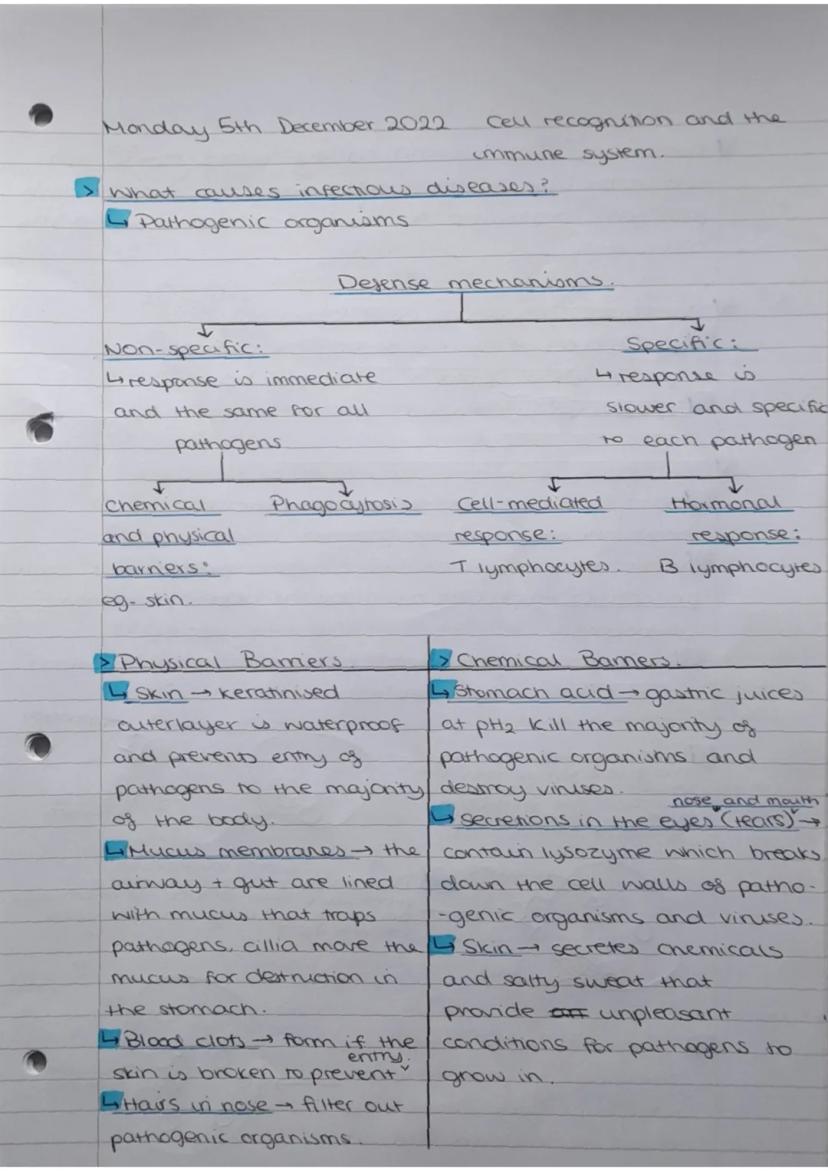 Monday 5th December 2022 Cell recognition and the
immune system.
> What causes infectious diseases?
↳ Pathogenic organisms
Defense mechanisms.
Non-specific:
↳ response is immediate
and the same for all
pathogens
Specific:
↳ response is
slower and specific
to each pathogen
Chemical
and physical
barriers:
eg. skin.
Phagocytosis
Cell-mediated
response:
T lymphocytes.
Hormonal
response:
B lymphocytes
> Physical Barriers.
↳ Skin → keratinised
outerlayer is waterproof
and prevents entry of
pathogens to the majority
of the body.
↳ Mucus membranes → the
airway + gut are lined
with mucus that traps
pathogens, cillia move the
mucus for destruction in
the stomach.
↳ Blood clots → form if the
skin is broken to prevent entry.
↳ Hairs in nose → filter out
pathogenic organisms.
> Chemical Barriers.
↳ Stomach acid → gastric juices
at pH2 kill the majority of
pathogenic organisms and
destroy viruses.
↳ secretions in the eyes (tears), nose and mouth →
contain lysozyme which breaks
down the cell walls of patho-
-genic organisms and viruses.
↳ Skin → secretes chemicals
and salty sweat that
provide unpleasant
conditions for pathogens to
grow in.